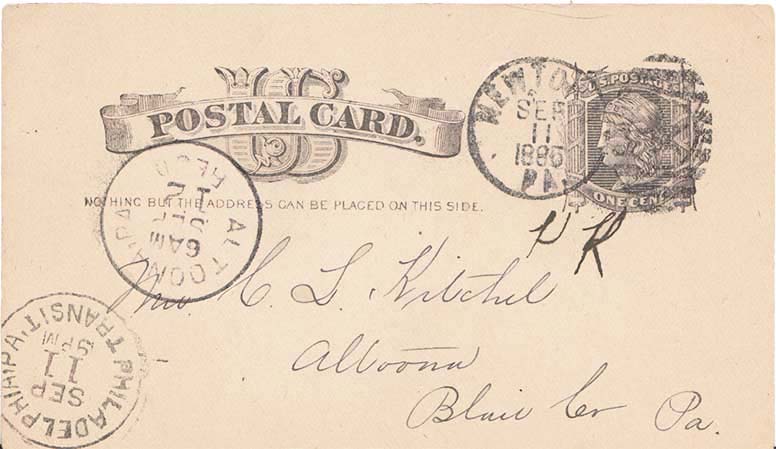 US
POSTAL CARD.
NEWTO
SEP
11
1885
PA.
U.S. POSTAGE
ONE CENT
NOTHING BUT THE ADDRESS CAN BE PLACED ON THIS SIDE.
ALTOONA PA
REC'D
SEP
6AM
P R
C. L. Kitchel
Altoona
Blair Co Pa.
PHILADELPHIA, PA.
TRANSIT
SEP
11
9PM